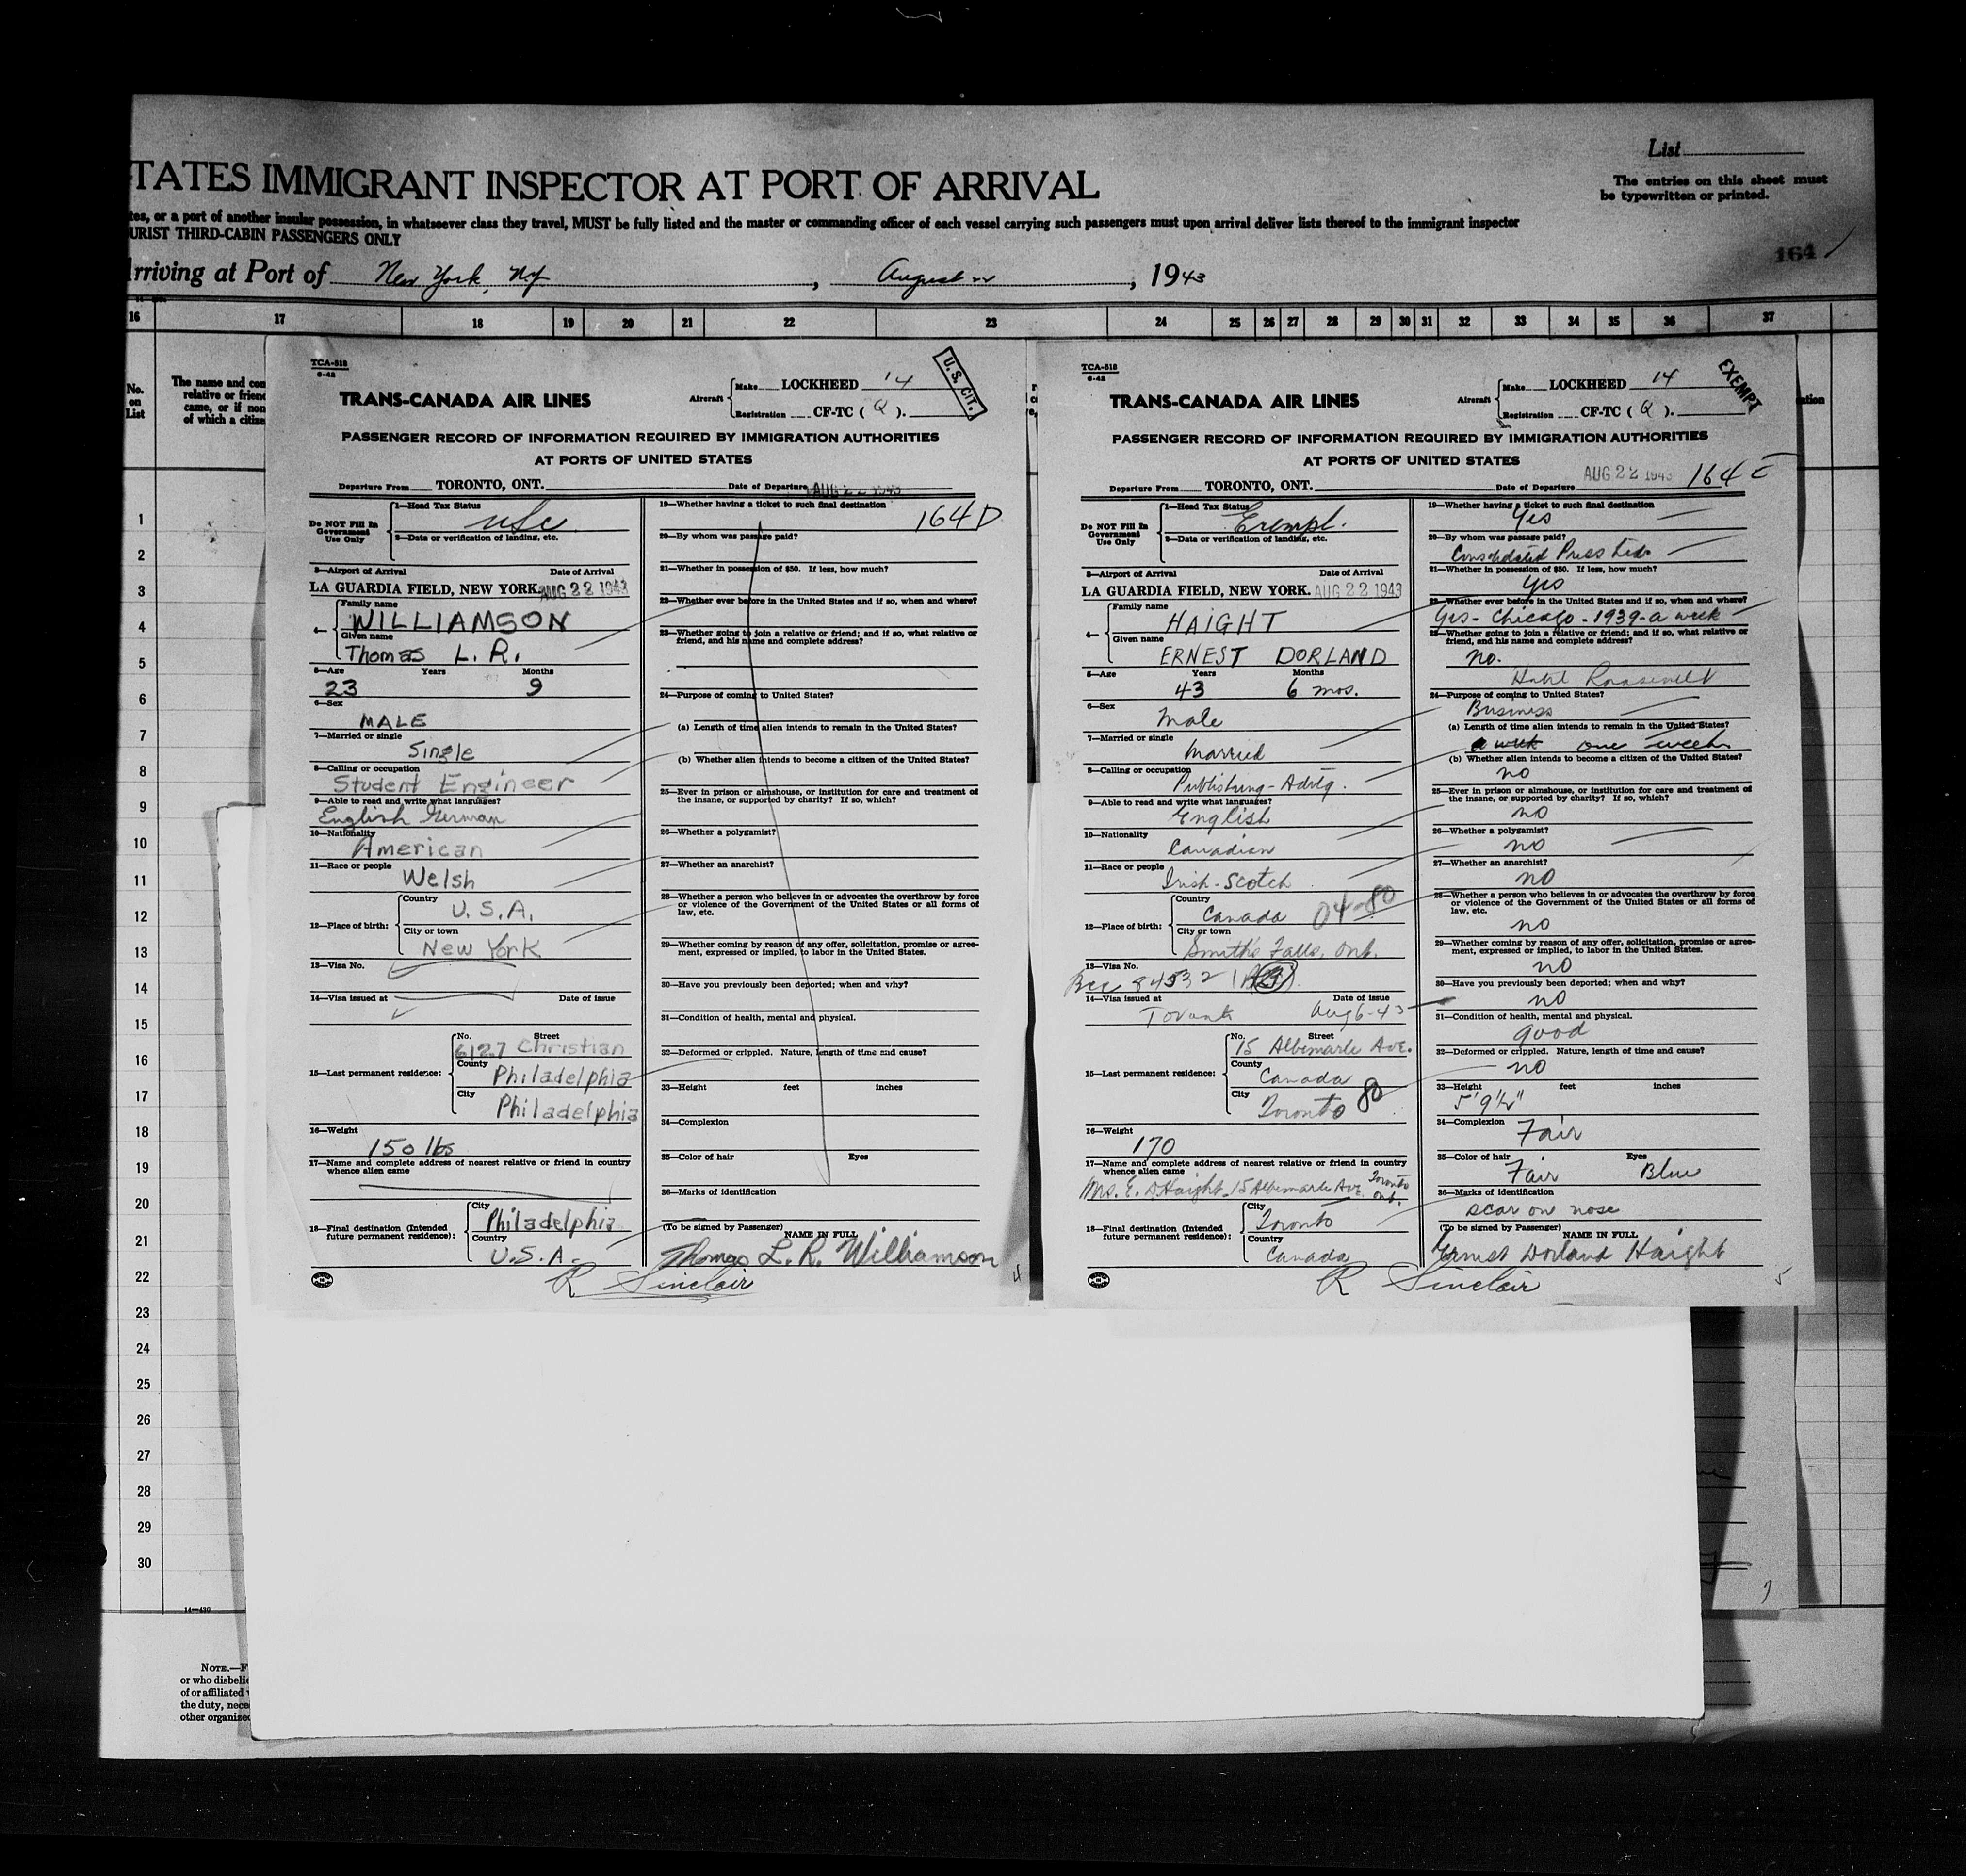 List
TATES IMMIGRANT INSPECTOR AT PORT OF ARRIVAL
The entries on this sheet must
be typewritten or printed.
tes, or a port of another insular possession, in whatsoever class they travel, MUST be fully listed and the master or commanding officer of each vessel carrying such passengers must upon arrival deliver lists thereof to the immigrant inspector
URIST THIRD-CABIN PASSENGERS ONLY
164
rriving at Port of New York, NY, August 22, 1943
16 17 18 19 20 21 22 23 24 25 26 27 28 29 30 31 32 33 34 35 36 37
No.
on
List
The name and con
relative or friend
came, or if non
of which a citize
1
2
3
4
5
6
7
8
9
10
11
12
13
14
15
16
17
18
19
20
21
22
23
24
25
26
27
28
29
30
14-430
NOTE.—F
or who disbelie
of or affiliated
the duty, nece
other organize
TCA-518
6-42
U. S. CIT.
TRANS-CANADA AIR LINES
Aircraft
Make LOCKHEED 14
Registration CF-TC ( Q ).
PASSENGER RECORD OF INFORMATION REQUIRED BY IMMIGRATION AUTHORITIES
AT PORTS OF UNITED STATES
Departure From TORONTO, ONT. Date of Departure AUG 22 1943
Do NOT Fill In
Government
Use Only
1—Head Tax Status
USC
2—Data or verification of landing, etc.
3—Airport of Arrival Date of Arrival
LA GUARDIA FIELD, NEW YORK. AUG 22 1943
4—
Family name
WILLIAMSON
Given name
Thomas L. R.
5—Age Years Months
23 9
6—Sex
MALE
7—Married or single
Single
8—Calling or occupation
Student Engineer
9—Able to read and write what languages?
English German
10—Nationality
American
11—Race or people
Welsh
12—Place of birth:
Country
U. S. A.
City or town
New York
13—Visa No.
14—Visa issued at Date of issue
15—Last permanent residence:
No. Street
6127 Christian
County
Philadelphia
City
Philadelphia
16—Weight
150 lbs
17—Name and complete address of nearest relative or friend in country
whence alien came
18—Final destination (Intended
future permanent residence):
City
Philadelphia
Country
U.S.A.
19—Whether having a ticket to such final destination
164 D
20—By whom was passage paid?
21—Whether in possession of $50. If less, how much?
22—Whether ever before in the United States and if so, when and where?
23—Whether going to join a relative or friend; and if so, what relative or
friend, and his name and complete address?
24—Purpose of coming to United States?
(a) Length of time alien intends to remain in the United States?
(b) Whether alien intends to become a citizen of the United States?
25—Ever in prison or almshouse, or institution for care and treatment of
the insane, or supported by charity? If so, which?
26—Whether a polygamist?
27—Whether an anarchist?
28—Whether a person who believes in or advocates the overthrow by force
or violence of the Government of the United States or all forms of
law, etc.
29—Whether coming by reason of any offer, solicitation, promise or agree-
ment, expressed or implied, to labor in the United States.
30—Have you previously been deported; when and why?
31—Condition of health, mental and physical.
32—Deformed or crippled. Nature, length of time and cause?
33—Height feet inches
34—Complexion
35—Color of hair Eyes
36—Marks of identification
(To be signed by Passenger)
NAME IN FULL
Thomas L. R. Williamson
R Sinclair
4
TCA-518
6-42
EXEMPT
TRANS-CANADA AIR LINES
Aircraft
Make LOCKHEED 14
Registration CF-TC ( Q ).
PASSENGER RECORD OF INFORMATION REQUIRED BY IMMIGRATION AUTHORITIES
AT PORTS OF UNITED STATES
Departure From TORONTO, ONT. Date of Departure AUG 22 1943 164 E
Do NOT Fill In
Government
Use Only
1—Head Tax Status
Exempt.
2—Data or verification of landing, etc.
3—Airport of Arrival Date of Arrival
LA GUARDIA FIELD, NEW YORK. AUG 22 1943
4—
Family name
HAIGHT
Given name
ERNEST DORLAND
5—Age Years Months
43 6 mos.
6—Sex
Male
7—Married or single
Married
8—Calling or occupation
Publishing - Advtg.
9—Able to read and write what languages?
English
10—Nationality
Canadian
11—Race or people
Irish-Scotch
12—Place of birth:
Country
Canada 04-80
City or town
Smith's Falls, Ont.
13—Visa No.
Bcc 84532
14—Visa issued at Date of issue
Toronto Aug 6-43
15—Last permanent residence:
No. Street
15 Albemarle Ave.
County
Canada
City
Toronto 80
16—Weight
170
17—Name and complete address of nearest relative or friend in country
whence alien came
Mrs. E. D Haight. 15 Albemarle Ave. Toronto Ont.
18—Final destination (Intended
future permanent residence):
City
Toronto
Country
Canada
19—Whether having a ticket to such final destination
Yes
20—By whom was passage paid?
Consolidated Press Ltd.
21—Whether in possession of $50. If less, how much?
yes
22—Whether ever before in the United States and if so, when and where?
yes - Chicago - 1939 - a week
23—Whether going to join a relative or friend; and if so, what relative or
friend, and his name and complete address?
no.
Hotel Roosevelt
24—Purpose of coming to United States?
Business
(a) Length of time alien intends to remain in the United States?
a week one week
(b) Whether alien intends to become a citizen of the United States?
no
25—Ever in prison or almshouse, or institution for care and treatment of
the insane, or supported by charity? If so, which?
no
26—Whether a polygamist?
no
27—Whether an anarchist?
no
28—Whether a person who believes in or advocates the overthrow by force
or violence of the Government of the United States or all forms of
law, etc.
no
29—Whether coming by reason of any offer, solicitation, promise or agree-
ment, expressed or implied, to labor in the United States.
no
30—Have you previously been deported; when and why?
no
31—Condition of health, mental and physical.
good
32—Deformed or crippled. Nature, length of time and cause?
no
33—Height feet inches
5' 9 1/2"
34—Complexion
Fair
35—Color of hair Eyes
Fair Blue
36—Marks of identification
scar on nose
(To be signed by Passenger)
NAME IN FULL
Ernest Dorland Haight
R Sinclair
5